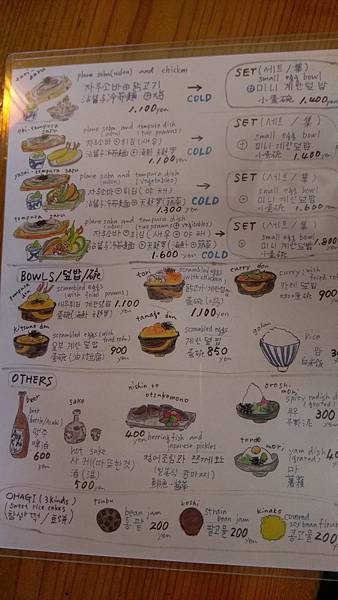 tori zaru
plane soba (udon) and chicken
자루소바 ⊕ 닭고기
→
COLD
1.100 yen
SET (세트/集)
small egg bowl
⊕ 미니 계란덮밥
小蓋碗 1.400 yen
ebi-tempura zaru
plane soba and tempura dish
(two prawns)
자루소바 ⊕ 튀김 (새우)
→
COLD
1.100 yen
SET (세트/集)
small egg bowl
⊕ 미니 계란덮밥
小蓋碗 1.400 yen
yasai-tempura zaru
plane soba and tempura dish
(vegetables)
자루소바 ⊕ 튀김 (야채)
→
COLD
1.300 yen
SET (세트/集)
small egg bowl
⊕ 미니 계란덮밥
小蓋碗 1.600 yen
tempura zaru
plane soba and tempura dish
(two prawns ⊕ vegetables)
자루소바 ⊕ 튀김 (새우 ⊕ 야채)
→
COLD
1.600 yen
SET (세트/集)
small egg bowl
⊕ 미니 계란덮밥
小蓋碗 1.900 yen
BOWLS/덮밥/碗
tempura don
scrambled eggs
(with fried prawns)
새우튀김 계란 덮밥
1.100 yen
tori
scrambled eggs
(with chicken)
1.100 yen
curry don
curry (with
fried tofu)
카레 덮밥
900 yen
kitsune don
scrambled eggs (with fried tofu)
유부 계란 덮밥
900 yen
tamago don
scrambled eggs
계란 덮밥
蓋碗 850 yen
gohan
rice
밥
OTHERS
beer
beer
맥주
啤酒
600 yen
sake
hot sake
사케(따뜻한것)
酒(温)
500 yen
nishin to otsukemono
400 yen
herring fish and
japanese pickles
청어조림과 쯔케모노
oroshi mochi
spicy radish
(grated)
무
300 yen
tororo mochi
yam dish
(grated)
마
400 yen
OHAGI (3 Kinds)
sweet rice cakes
찹쌀떡
tsubu
bean jam
통팥
200 yen
koshi
strain
bean jam
팥고물
200 yen
kinako
covered
soy bean flour
콩고물
200 yen